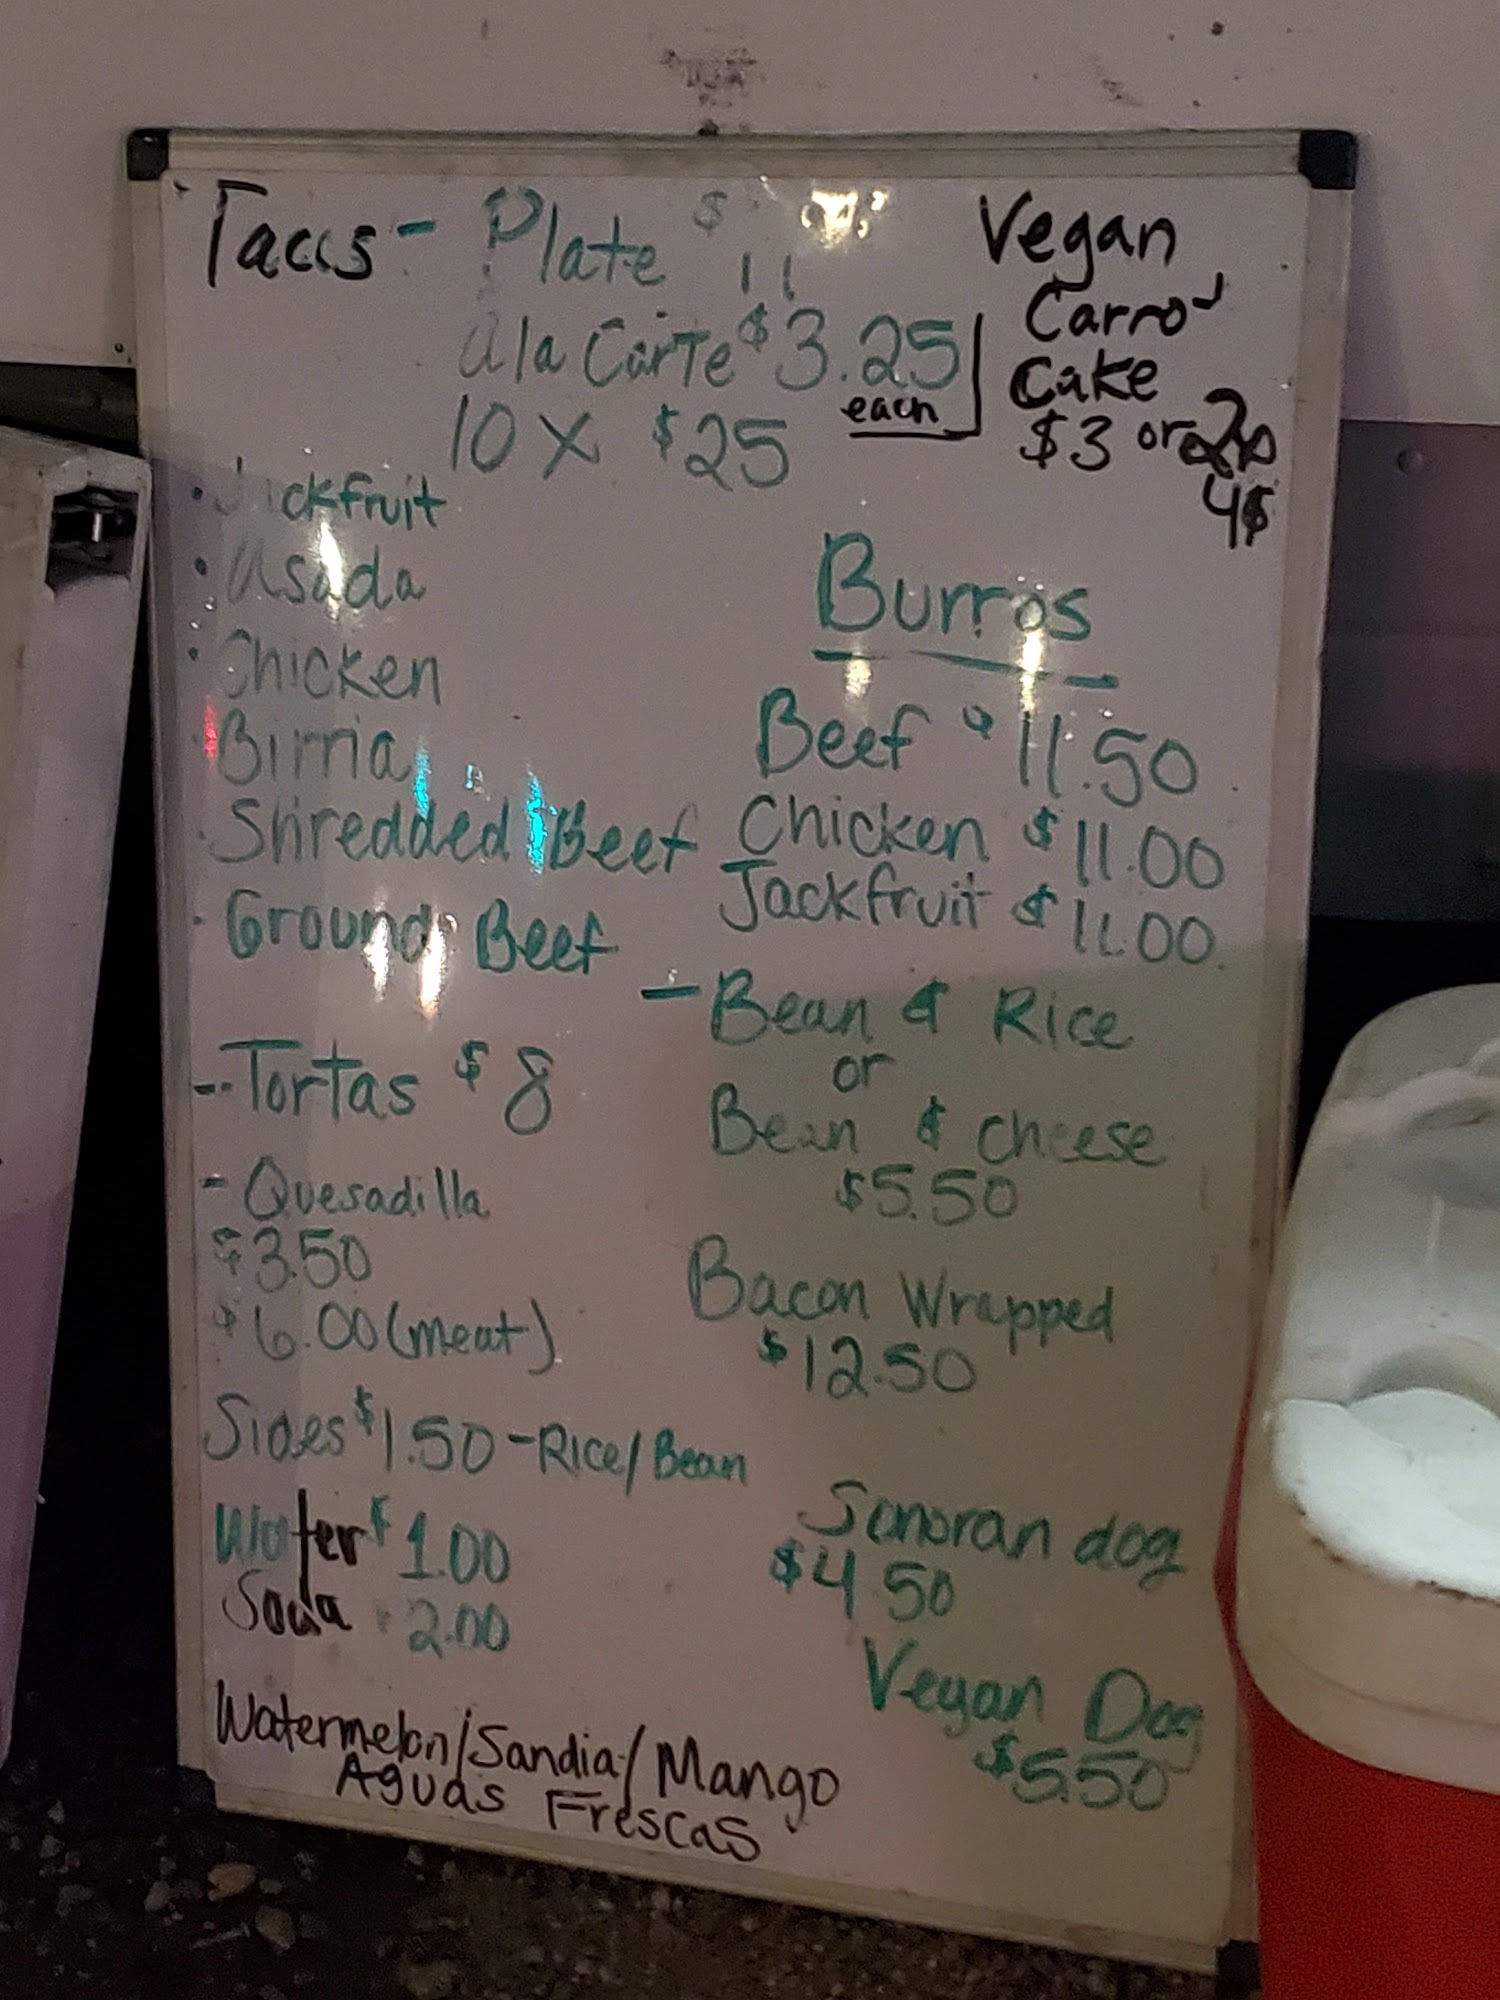 Tacos - Plate $11
a la Carte $3.25
each
10 x $25
Vegan
Carrot
Cake
$3 or 2x
4$
· Jackfruit
· Asada
· Chicken
· Birria
· Shredded Beef
· Ground Beef
- Tortas $8
- Quesadilla
$3.50
$6.00 (meat)
Sides $1.50 - Rice/Bean
Water $1.00
Soda $2.00
Watermelon/Sandia/Mango
Aguas Frescas
Burros
Beef $11.50
Chicken $11.00
Jackfruit $11.00
- Bean & Rice
or
Bean & cheese
$5.50
Bacon Wrapped
$12.50
Sonoran dog
$4.50
Vegan Dog
$5.50